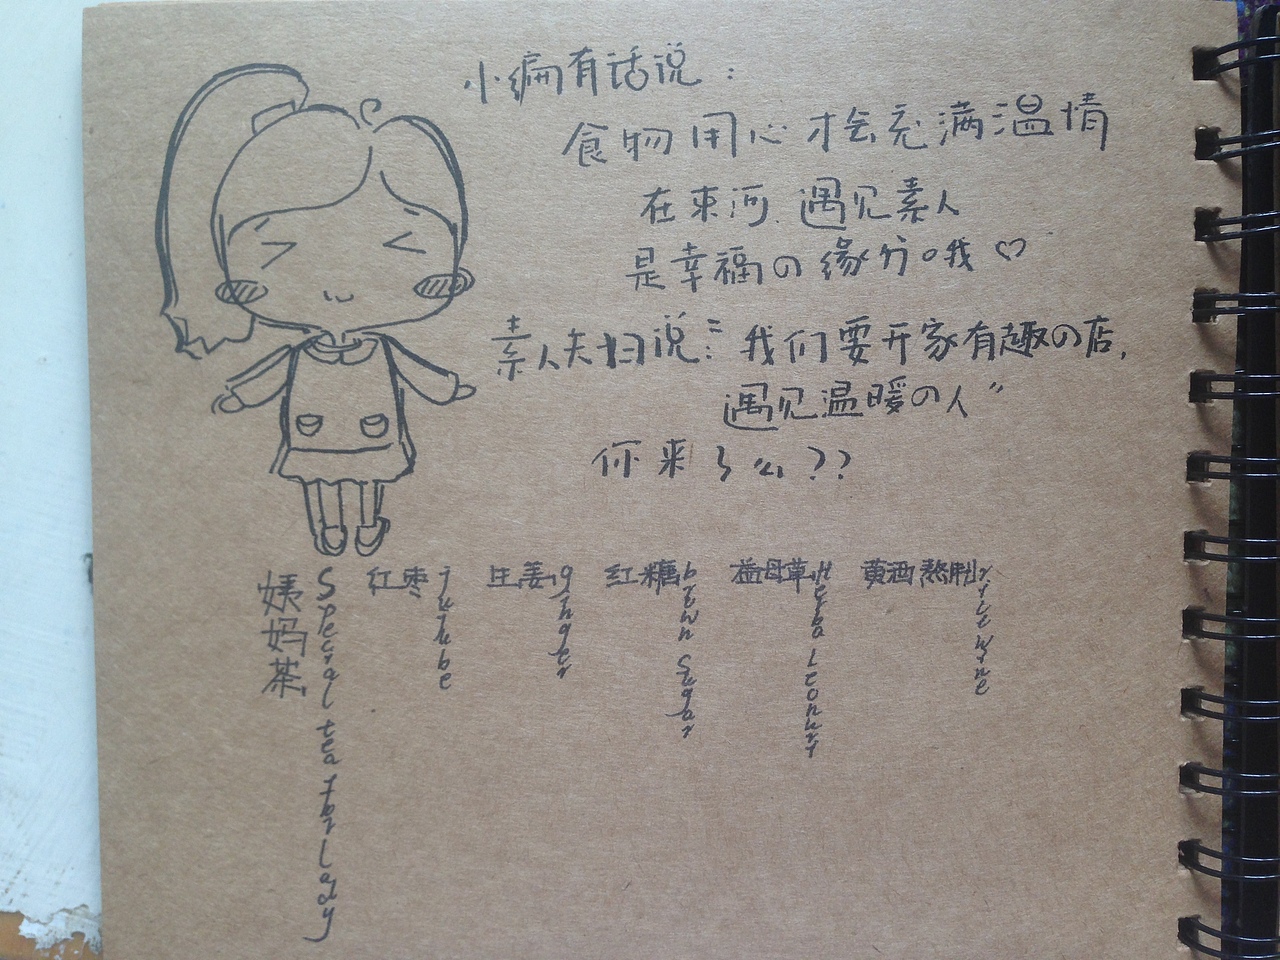 小编有话说：
食物用心才会充满温情
在束河.遇见素人
是幸福の缘分哦♡
素人夫妇说："我们要开家有趣の店,
遇见温暖の人"
你来了么??
姨妈茶,
Special tea for Lady
红枣
jujube
生姜,
ginger
红糖
brown Sugar
益母草,
Herba leonuri
黄酒熬制
rice wine